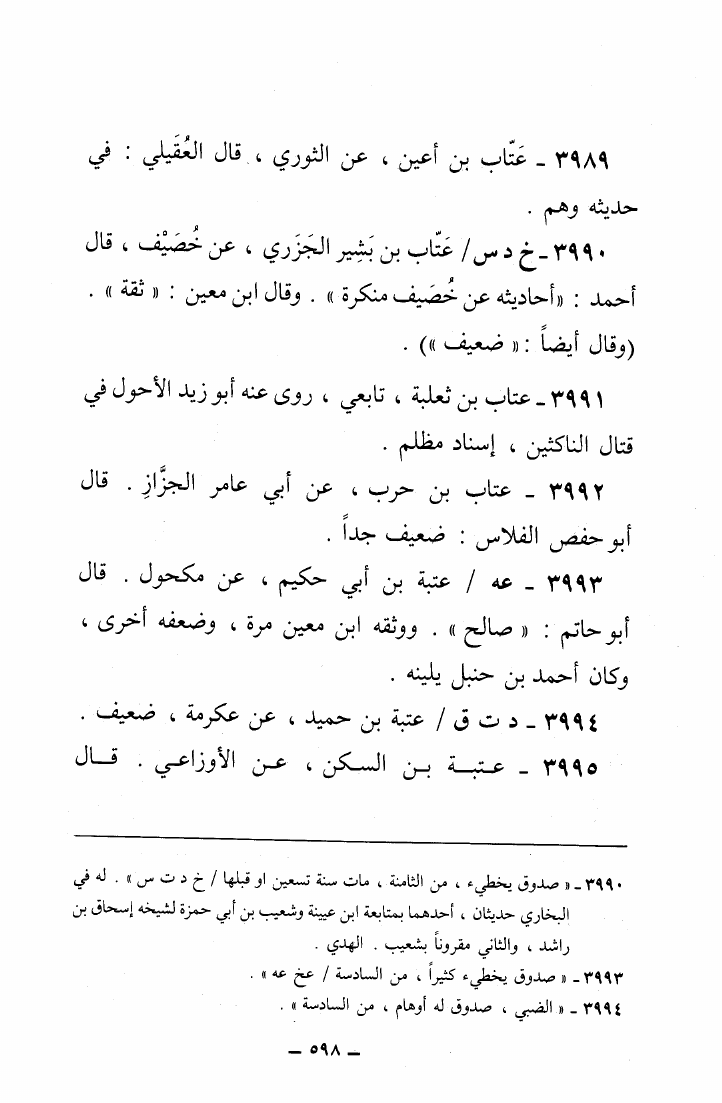 ٣٩٨٩ ـ عَتّاب بن أعين ، عن الثوري ، قال العُقَيلي : في
حديثه وهم .
٣٩٩٠ ـ خ د س/ عَتّاب بن بَشِير الجَزَري ، عن خُصَيْف ، قال
أحمد : «أحاديثه عن خُصَيف منكرة» . وقال ابن معين : « ثقة» .
(وقال أيضاً :« ضعيف ») .
٣٩٩١ ـ عتاب بن ثعلبة ، تابعي ، روى عنه أبو زيد الأحول في
قتال الناكثين ، إسناد مظلم .
٣٩٩٢ ـ عتاب بن حرب ، عن أبي عامر الجزَّازِ . قال
أبو حفص الفلاس : ضعيف جداً .
٣٩٩٣ ـ عه / عتبة بن أبي حكيم ، عن مكحول . قال
أبو حاتم : « صالح» . ووثقه ابن معين مرة ، وضعفه أخرى ،
وكان أحمد بن حنبل يلينه .
٣٩٩٤ ـ د ت ق / عتبة بن حميد ، عن عكرمة ، ضعيف .
٣٩٩٥ ـ عتبة بن السكن ، عن الأوزاعي . قال
٣٩٩٠ ـ « صدوق يخطيء ، من الثامنة ، مات سنة تسعين او قبلها / خ د ت س » . له في
البخاري حديثان ، أحدهما بمتابعة ابن عيينة وشعيب بن أبي حمزة لشيخه إسحاق بن
راشد ، والثاني مقروناً بشعيب . الهدي .
٣٩٩٣ ـ « صدوق يخطيء كثيراً ، من السادسة / عخ عه » .
٣٩٩٤ ـ « الضبي ، صدوق له أوهام ، من السادسة » .
ـ ٥٩٨ ـ